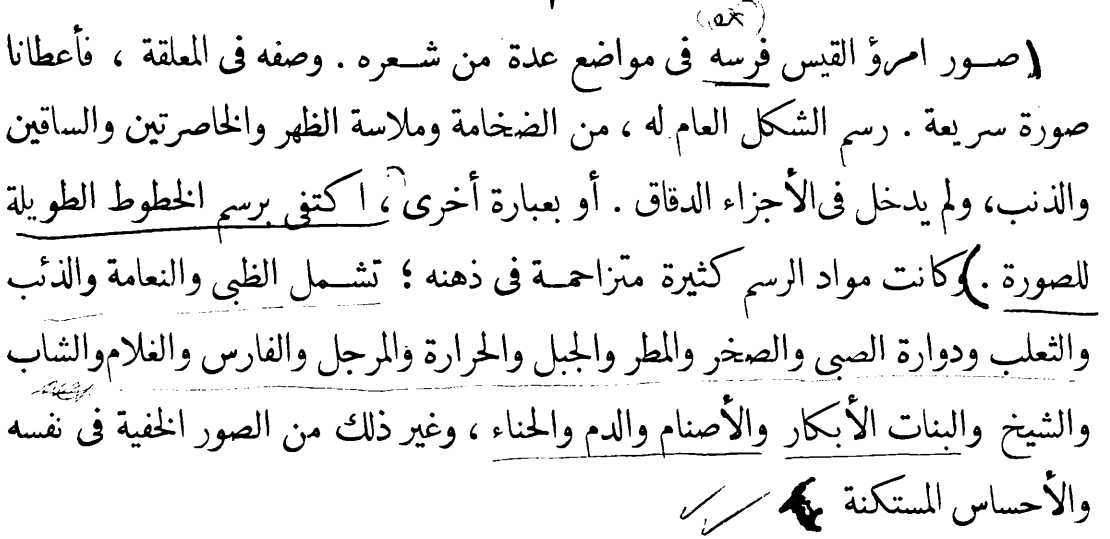 صـور امرؤ القيس فرسه فى مواضع عدة من شـعره . وصفه فى المعلقة ، فأعطانا
صورة سريعة . رسم الشكل العام له ، من الضخامة وملاسة الظهر والخاصرتين والساقين
والذنب، ولم يدخل فى الأجزاء الدقاق . أو بعبارة أخرى ، اكتفى برسم الخطوط الطويلة
للصورة . وكانت مواد الرسم كثيرة متزاحمـة فى ذهنه ؛ تشـمل الظبى والنعامة والذئب
والثعلب ودوارة الصبى والصخر والمطر والجبل والحرارة والمرجل والفارس والغلام والشاب
والشيخ والبنات الأبكار والأصنام والدم والحناء ، وغير ذلك من الصور الخفية فى نفسه
والأحساس المستكنة